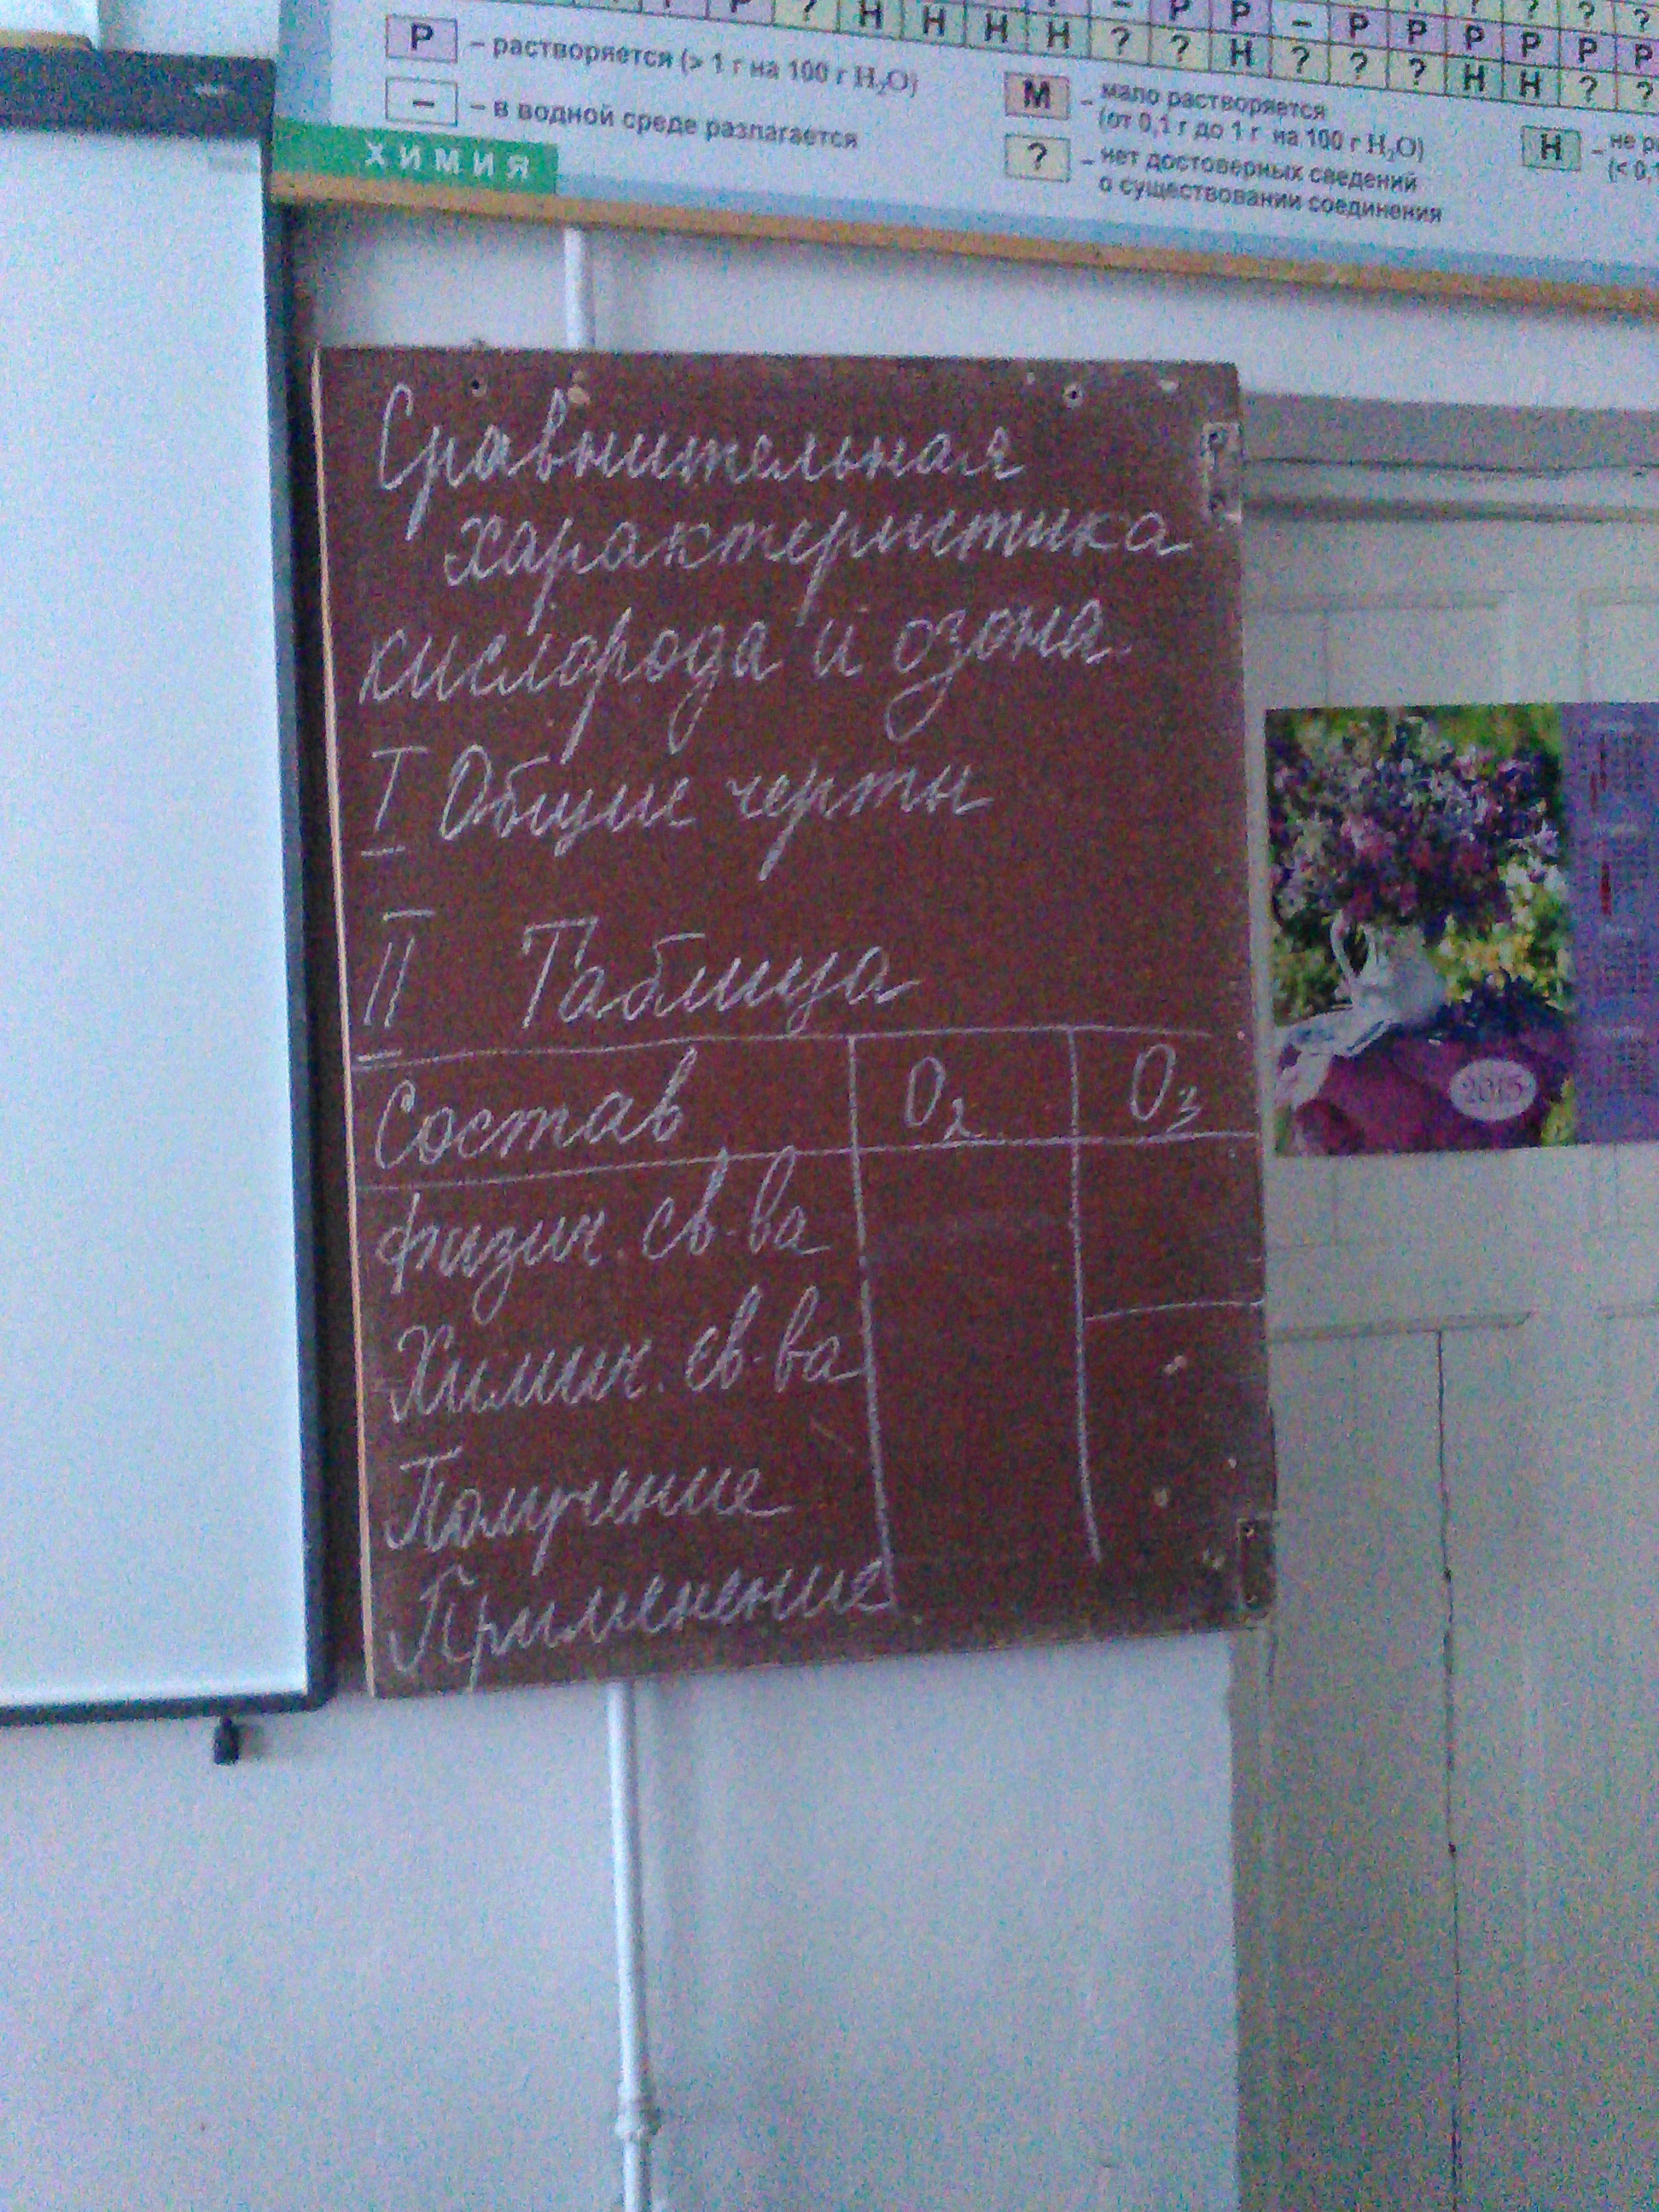 Р ? Н Н Н Н ? ? Н ? ? ? Н Н ? ?
Р Р – Р Р Р Р Р Р
Р – растворяется (> 1 г на 100 г H₂O)
– – в водной среде разлагается
М – мало растворяется
(от 0,1 г до 1 г на 100 г H₂O)
? – нет достоверных сведений
о существовании соединения
Н – не
(< 0,1
ХИМИЯ
Сравнительная
характеристика
кислорода и озона
I Общие черты
II Таблица
Состав O₂ O₃
физич. св-ва
Химич. св-ва
Получение
Применение
2015